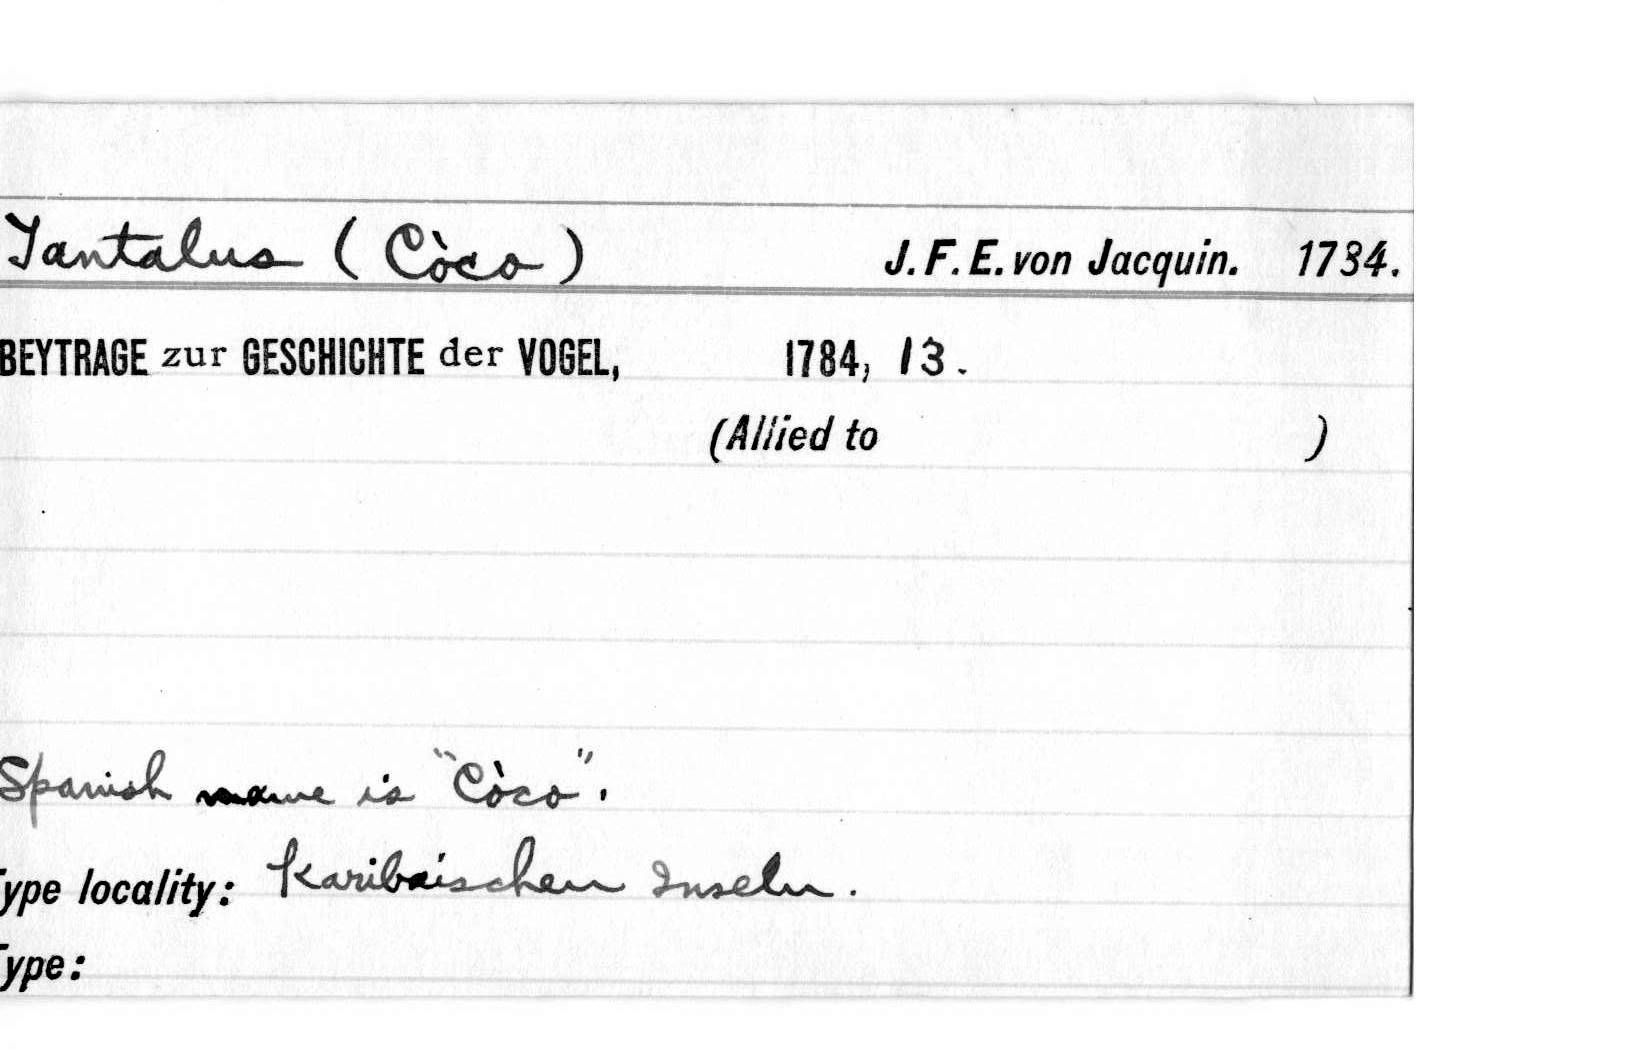 Tantalus (Còco) J. F. E. von Jacquin. 1784.
BEYTRAGE zur GESCHICHTE der VOGEL, 1784, 13.
(Allied to )
Spanish name is "Còco".
Type locality: Karibaischen Inseln.
Type: